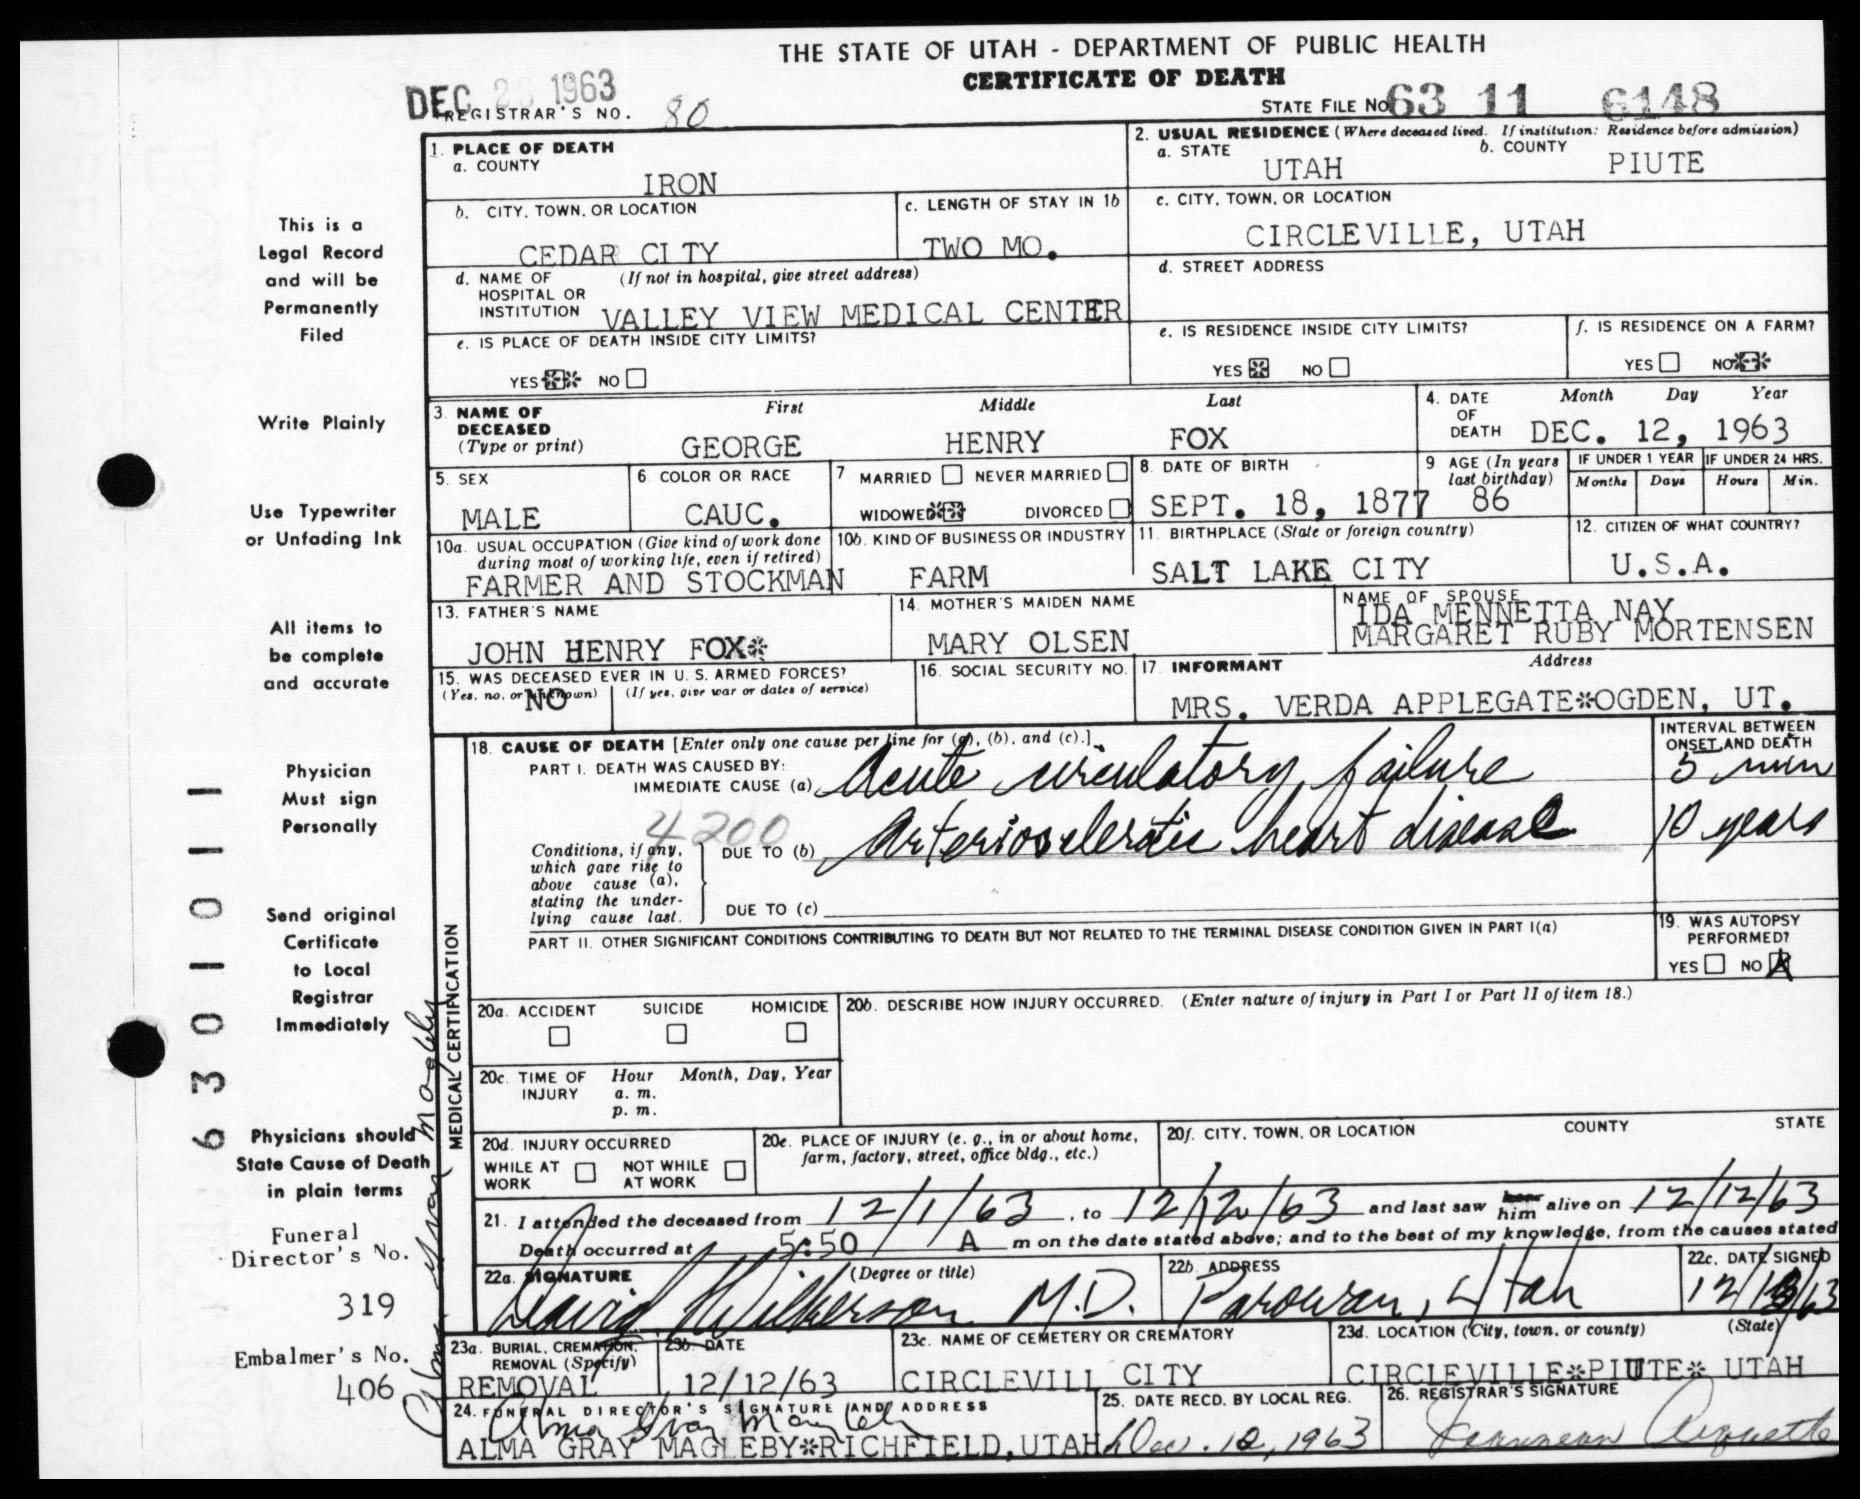 THE STATE OF UTAH - DEPARTMENT OF PUBLIC HEALTH
CERTIFICATE OF DEATH
DEC 1963
REGISTRAR'S NO. 80
STATE FILE NO. 63 11 6148
1. PLACE OF DEATH
a. COUNTY
IRON
2. USUAL RESIDENCE (Where deceased lived. If institution: Residence before admission)
a. STATE UTAH b. COUNTY PIUTE
b. CITY, TOWN, OR LOCATION
CEDAR CITY
c. LENGTH OF STAY IN 1b
TWO MO.
c. CITY, TOWN, OR LOCATION
CIRCLEVILLE, UTAH
d. NAME OF HOSPITAL OR INSTITUTION (If not in hospital, give street address)
VALLEY VIEW MEDICAL CENTER
d. STREET ADDRESS
e. IS PLACE OF DEATH INSIDE CITY LIMITS?
YES NO
e. IS RESIDENCE INSIDE CITY LIMITS?
YES NO
f. IS RESIDENCE ON A FARM?
YES NO
3. NAME OF DECEASED (Type or print)
First Middle Last
GEORGE HENRY FOX
4. DATE OF DEATH Month Day Year
DEC. 12, 1963
5. SEX
MALE
6. COLOR OR RACE
CAUC.
7 MARRIED NEVER MARRIED
WIDOWED DIVORCED
8. DATE OF BIRTH
SEPT. 18, 1877
9 AGE (In years last birthday)
86
IF UNDER 1 YEAR IF UNDER 24 HRS.
Months Days Hours Min.
10a. USUAL OCCUPATION (Give kind of work done during most of working life, even if retired)
FARMER AND STOCKMAN
10b. KIND OF BUSINESS OR INDUSTRY
FARM
11. BIRTHPLACE (State or foreign country)
SALT LAKE CITY
12. CITIZEN OF WHAT COUNTRY?
U.S.A.
13. FATHER'S NAME
JOHN HENRY FOX*
14. MOTHER'S MAIDEN NAME
MARY OLSEN
NAME OF SPOUSE
IDA MENNETTA NAY
MARGARET RUBY MORTENSEN
15. WAS DECEASED EVER IN U. S. ARMED FORCES?
(Yes, no, or unknown) (If yes, give war or dates of service)
NO
16. SOCIAL SECURITY NO.
17. INFORMANT Address
MRS. VERDA APPLEGATE*OGDEN, UT.
MEDICAL CERTIFICATION
18. CAUSE OF DEATH [Enter only one cause per line for (a), (b), and (c).]
PART I. DEATH WAS CAUSED BY:
IMMEDIATE CAUSE (a) Acute circulatory failure
INTERVAL BETWEEN ONSET AND DEATH
5 min
4200
Conditions, if any, which gave rise to above cause (a), stating the underlying cause last.
DUE TO (b) Arteriosclerotic heart disease
10 years
DUE TO (c)
PART II. OTHER SIGNIFICANT CONDITIONS CONTRIBUTING TO DEATH BUT NOT RELATED TO THE TERMINAL DISEASE CONDITION GIVEN IN PART I(a)
19. WAS AUTOPSY PERFORMED?
YES NO
20a. ACCIDENT SUICIDE HOMICIDE
20b. DESCRIBE HOW INJURY OCCURRED. (Enter nature of injury in Part I or Part II of item 18.)
20c. TIME OF INJURY Hour Month, Day, Year
a. m.
p. m.
20d. INJURY OCCURRED
WHILE AT WORK NOT WHILE AT WORK
20e. PLACE OF INJURY (e. g., in or about home, farm, factory, street, office bldg., etc.)
20f. CITY, TOWN, OR LOCATION COUNTY STATE
21. I attended the deceased from 12/1/63, to 12/12/63 and last saw him alive on 12/12/63
Death occurred at 5:50 A m on the date stated above; and to the best of my knowledge, from the causes stated
22a. SIGNATURE (Degree or title)
David Wilkerson M.D.
22b. ADDRESS
Parowan, Utah
22c. DATE SIGNED
12/13/63
23a. BURIAL, CREMATION, REMOVAL (Specify)
REMOVAL
23b. DATE
12/12/63
23c. NAME OF CEMETERY OR CREMATORY
CIRCLEVILL CITY
23d. LOCATION (City, town, or county) (State)
CIRCLEVILLE*PIUTE* UTAH
24. FUNERAL DIRECTOR'S SIGNATURE AND ADDRESS
Alma Gray Magleby
ALMA GRAY MAGLEBY*RICHFIELD, UTAH
25. DATE RECD. BY LOCAL REG.
Dec. 12, 1963
26. REGISTRAR'S SIGNATURE
This is a
Legal Record
and will be
Permanently
Filed
Write Plainly
Use Typewriter
or Unfading Ink
All items to
be complete
and accurate
Physician
Must sign
Personally
Send original
Certificate
to Local
Registrar
Immediately
Physicians should
State Cause of Death
in plain terms
Funeral
Director's No.
319
Embalmer's No.
406
Alma Gray Magleby
6 3 0 1 0 1 1